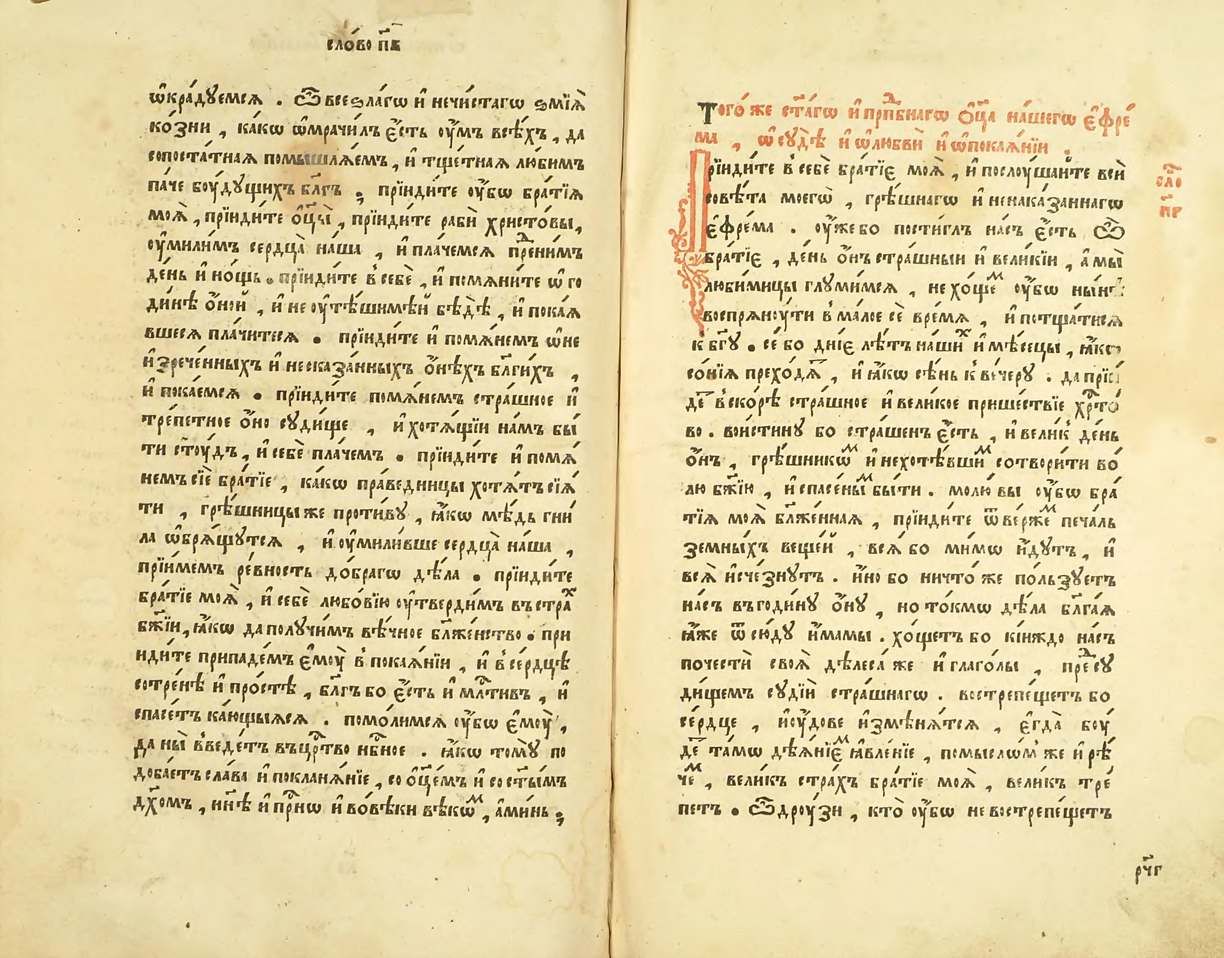 сло́во п҃в
ѡ҆кра́дꙋемсѧ . Ѿ всеѕла́гѡ и҆ нечи́стагѡ ѕмі́ѧ
ко́зни , ка́кѡ ѡ҆мрачи́лъ є҆́сть ᲂу҆́мъ всѣ́хъ , да
сопоста́тнаѧ помышлѧ́емъ , и҆ тще́тнаѧ лю́бимъ
па́че боу́дущихъ бл҃гъ ; прїиди́те ᲂу҆́бѡ бра́тїѧ
моѧ̀ , прїиди́те ѻ҆ц҃ы̀ , прїиди́те рабѝ христо́вы ,
ᲂу҆мили́мъ сердца̀ на́ша , и҆ пла́чемсѧ пре́нимъ
де́нь и҆ но́щь . прїиди́те в себѐ , и҆ помѧни́те ѡ҆ го
ди́нѣ ѻ҆́ной , и҆ не ᲂу҆тѣ́шимѣй бѣдѣ̀ , и҆ пока́ѧ
вшесѧ пла́читесѧ . прїиди́те и҆ помѧ́немъ ѡ҆ не
и҆зрече́нныхъ и҆ несказа́нныхъ ѻ҆́нѣхъ бл҃ги́хъ ,
и҆ пока́емсѧ . прїиди́те помѧ́немъ стра́шное и҆
тре́петное ѻ҆́но суди́ще , и҆ хотѧ́щїи на́мъ бы́
ти сто́удъ , и҆ себѐ пла́чемъ . прїиди́те и҆ помѧ́
немъ сїѐ бра́тїе , ка́кѡ пра́ведницы хотѧ́тъ сїѧ́
ти , грѣ́шницы же проти́вꙋ , ꙗ҆́кѡ мѣ́дь гни
ла̀ ѡ҆брѧ́щꙋтсѧ , и҆ ᲂу҆мили́вше сердца̀ на́ша ,
прїи́мемъ ре́вность до́брагѡ дѣ́ла . прїиди́те
бра́тїе моѧ̀ , и҆ себѐ любо́вїю ᲂу҆тверди́мъ въ стра́х
бж҃їи , ꙗ҆́кѡ да полꙋчи́мъ вѣ́чное бл҃же́нство . при
иди́те припаде́мъ є҆моу̀ в покаѧ́нїи , и҆ в се́рдцѣ
сотре́нѣ и҆ про́стѣ , бл҃гъ бо є҆́сть и҆ мл҃тивъ , и҆
спасе́тъ ка́ющыѧсѧ . помо́лимсѧ ᲂу҆́бѡ є҆моу̀ ,
да ны̀ введе́тъ въ цр҃тво нб҃ное . ꙗ҆́кѡ томꙋ̀ по
доба́етъ сла́ва и҆ покланѧ́нїе , со ѻ҆ц҃е́мъ и҆ со ст҃ы́мъ
дх҃омъ , нн҃ѣ и҆ пр҃нѡ и҆ во вѣ́ки вѣко́м , а҆ми́нь ;
Того́же ст҃а́гѡ и҆ прпⷣбнагѡ ѻ҆ц҃а на́шегѡ є҆фре́
ма , ѡ҆ сꙋдѣ̀ и҆ ѡ҆ любвѝ и҆ ѡ҆ покаѧ́нїи .
сло п҃г
Прїиди́те в себѐ бра́тїє моѧ̀ , и҆ послоу́шайте всѝ
совѣ́та моегѡ̀ , грѣ́шнагѡ и҆ ненака́заннагѡ
є҆фре́ма . ᲂу҆же́ бо пости́глъ на́съ є҆́сть Ѿ
бра́тїє , де́нь ѻ҆́нъ стра́шныи и҆ вели́кїи , а҆ мы̀
люби́мицы глꙋми́мсѧ , не хо́щеⷨ ᲂу҆́бѡ ны́нѣ
воспрѧноу́ти в ма́лое сѐ вре́мѧ , и҆ потща́тисѧ
к бг҃ꙋ . се́ бо дні́є лѣ́тъ на́шиⷯ и҆ мѣ́сѧцы , ꙗ҆́кѡ
со́нїѧ прехо́дѧⷮ , и҆ ꙗ҆́кѡ сѣ́нь к ве́черꙋ . да прїи́
деⷮ вско́рѣ стра́шное и҆ вели́кое прише́ствїе хрⷭ҇то́
во . вои́стинꙋ бо стра́шенъ є҆́сть , и҆ вели́к де́нь
ѻ҆́нъ , грѣ́шникѡⷨ и҆ не хотѣ́вшиⷨ сотвори́ти во́
лю бж҃їю , и҆ спасе́ныⷨ бы́ти . молю́ вы ᲂу҆́бѡ бра́
тїѧ моѧ̀ бл҃же́ннаѧ , прїиди́те ѿве́ржеⷨ печа́ль
земны́хъ веще́й , всѧ́ бо ми́мѡ и҆́дꙋтъ , и҆
всѧ̀ и҆сче́знꙋтъ . и҆́но бо ничто́же по́льзꙋетъ
на́съ въ годи́нꙋ ѻ҆́нꙋ , но то́кмѡ дѣ́ла бл҃га́ѧ
ꙗ҆́же ѿсю́дꙋ и҆́мамы . хо́щетъ бо кі́иждо на́съ
почестѝ своѧ̀ дѣлеса́ же и҆ глаго́лы , преⷣ сꙋ
ди́щемъ сꙋдїѝ стра́шнагѡ . вострепе́щетъ бо
се́рдце , и҆ ᲂу҆́дове и҆змѣ́нѧтсѧ , є҆гда̀ боу́
деⷮ та́мѡ дѣѧ́нїє ꙗ҆вле́нїе , помысло́м же и҆ рѣ́
чеⷨ , вели́къ стра́хъ бра́тїе моѧ̀ , вели́къ тре́
петъ . Ѽ дроу́зи , кто̀ ᲂу҆́бѡ не вострепе́щетъ
рч҃г